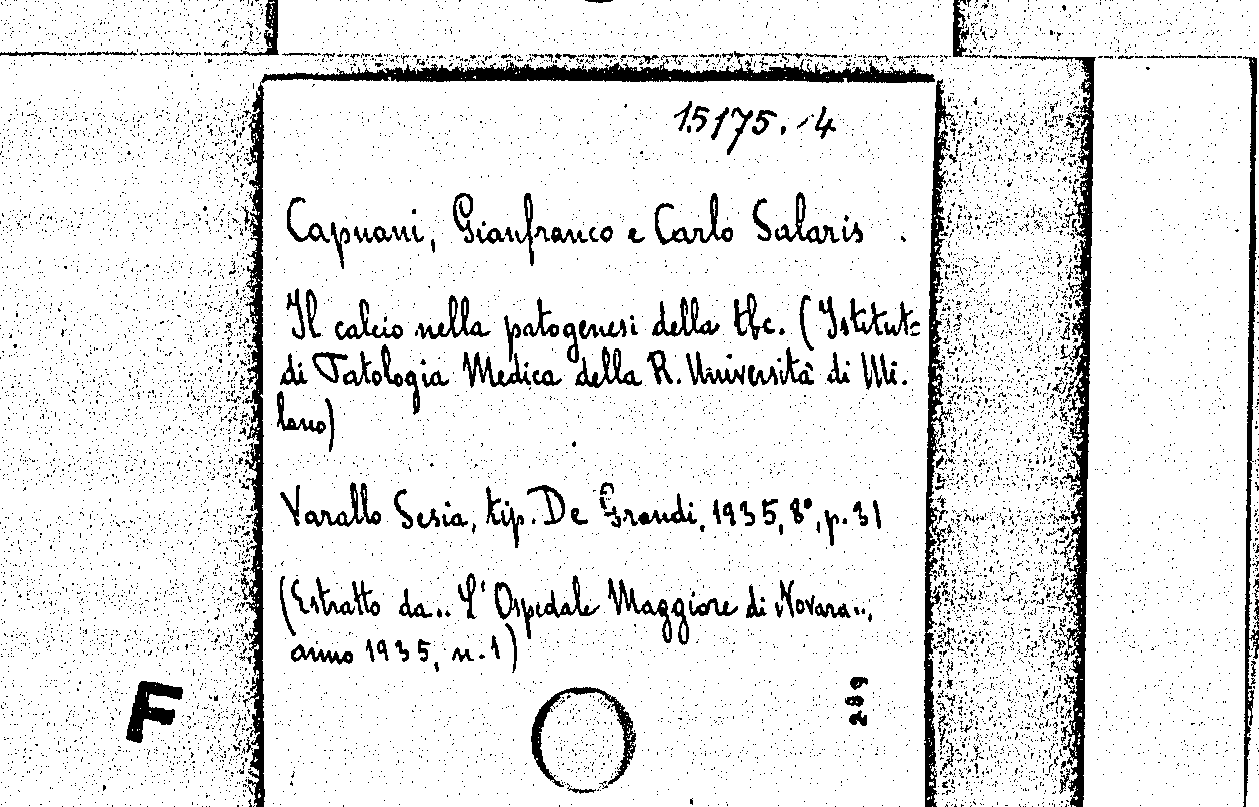 15175.-4
Capuani, Gianfranco e Carlo Salaris .
Il calcio nella patogenesi della tbc. (Istitut=
di Patologia Medica della R. Università di Mi.
lano)
Varallo Sesia, tip. De Grandi, 1935, 8°, p. 31
(Estratto da „ L'Ospedale Maggiore di Novara„,
anno 1935, n. 1)
289
F